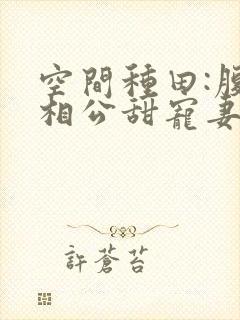 空間種田:腹
相公甜寵妻
許蒼苔